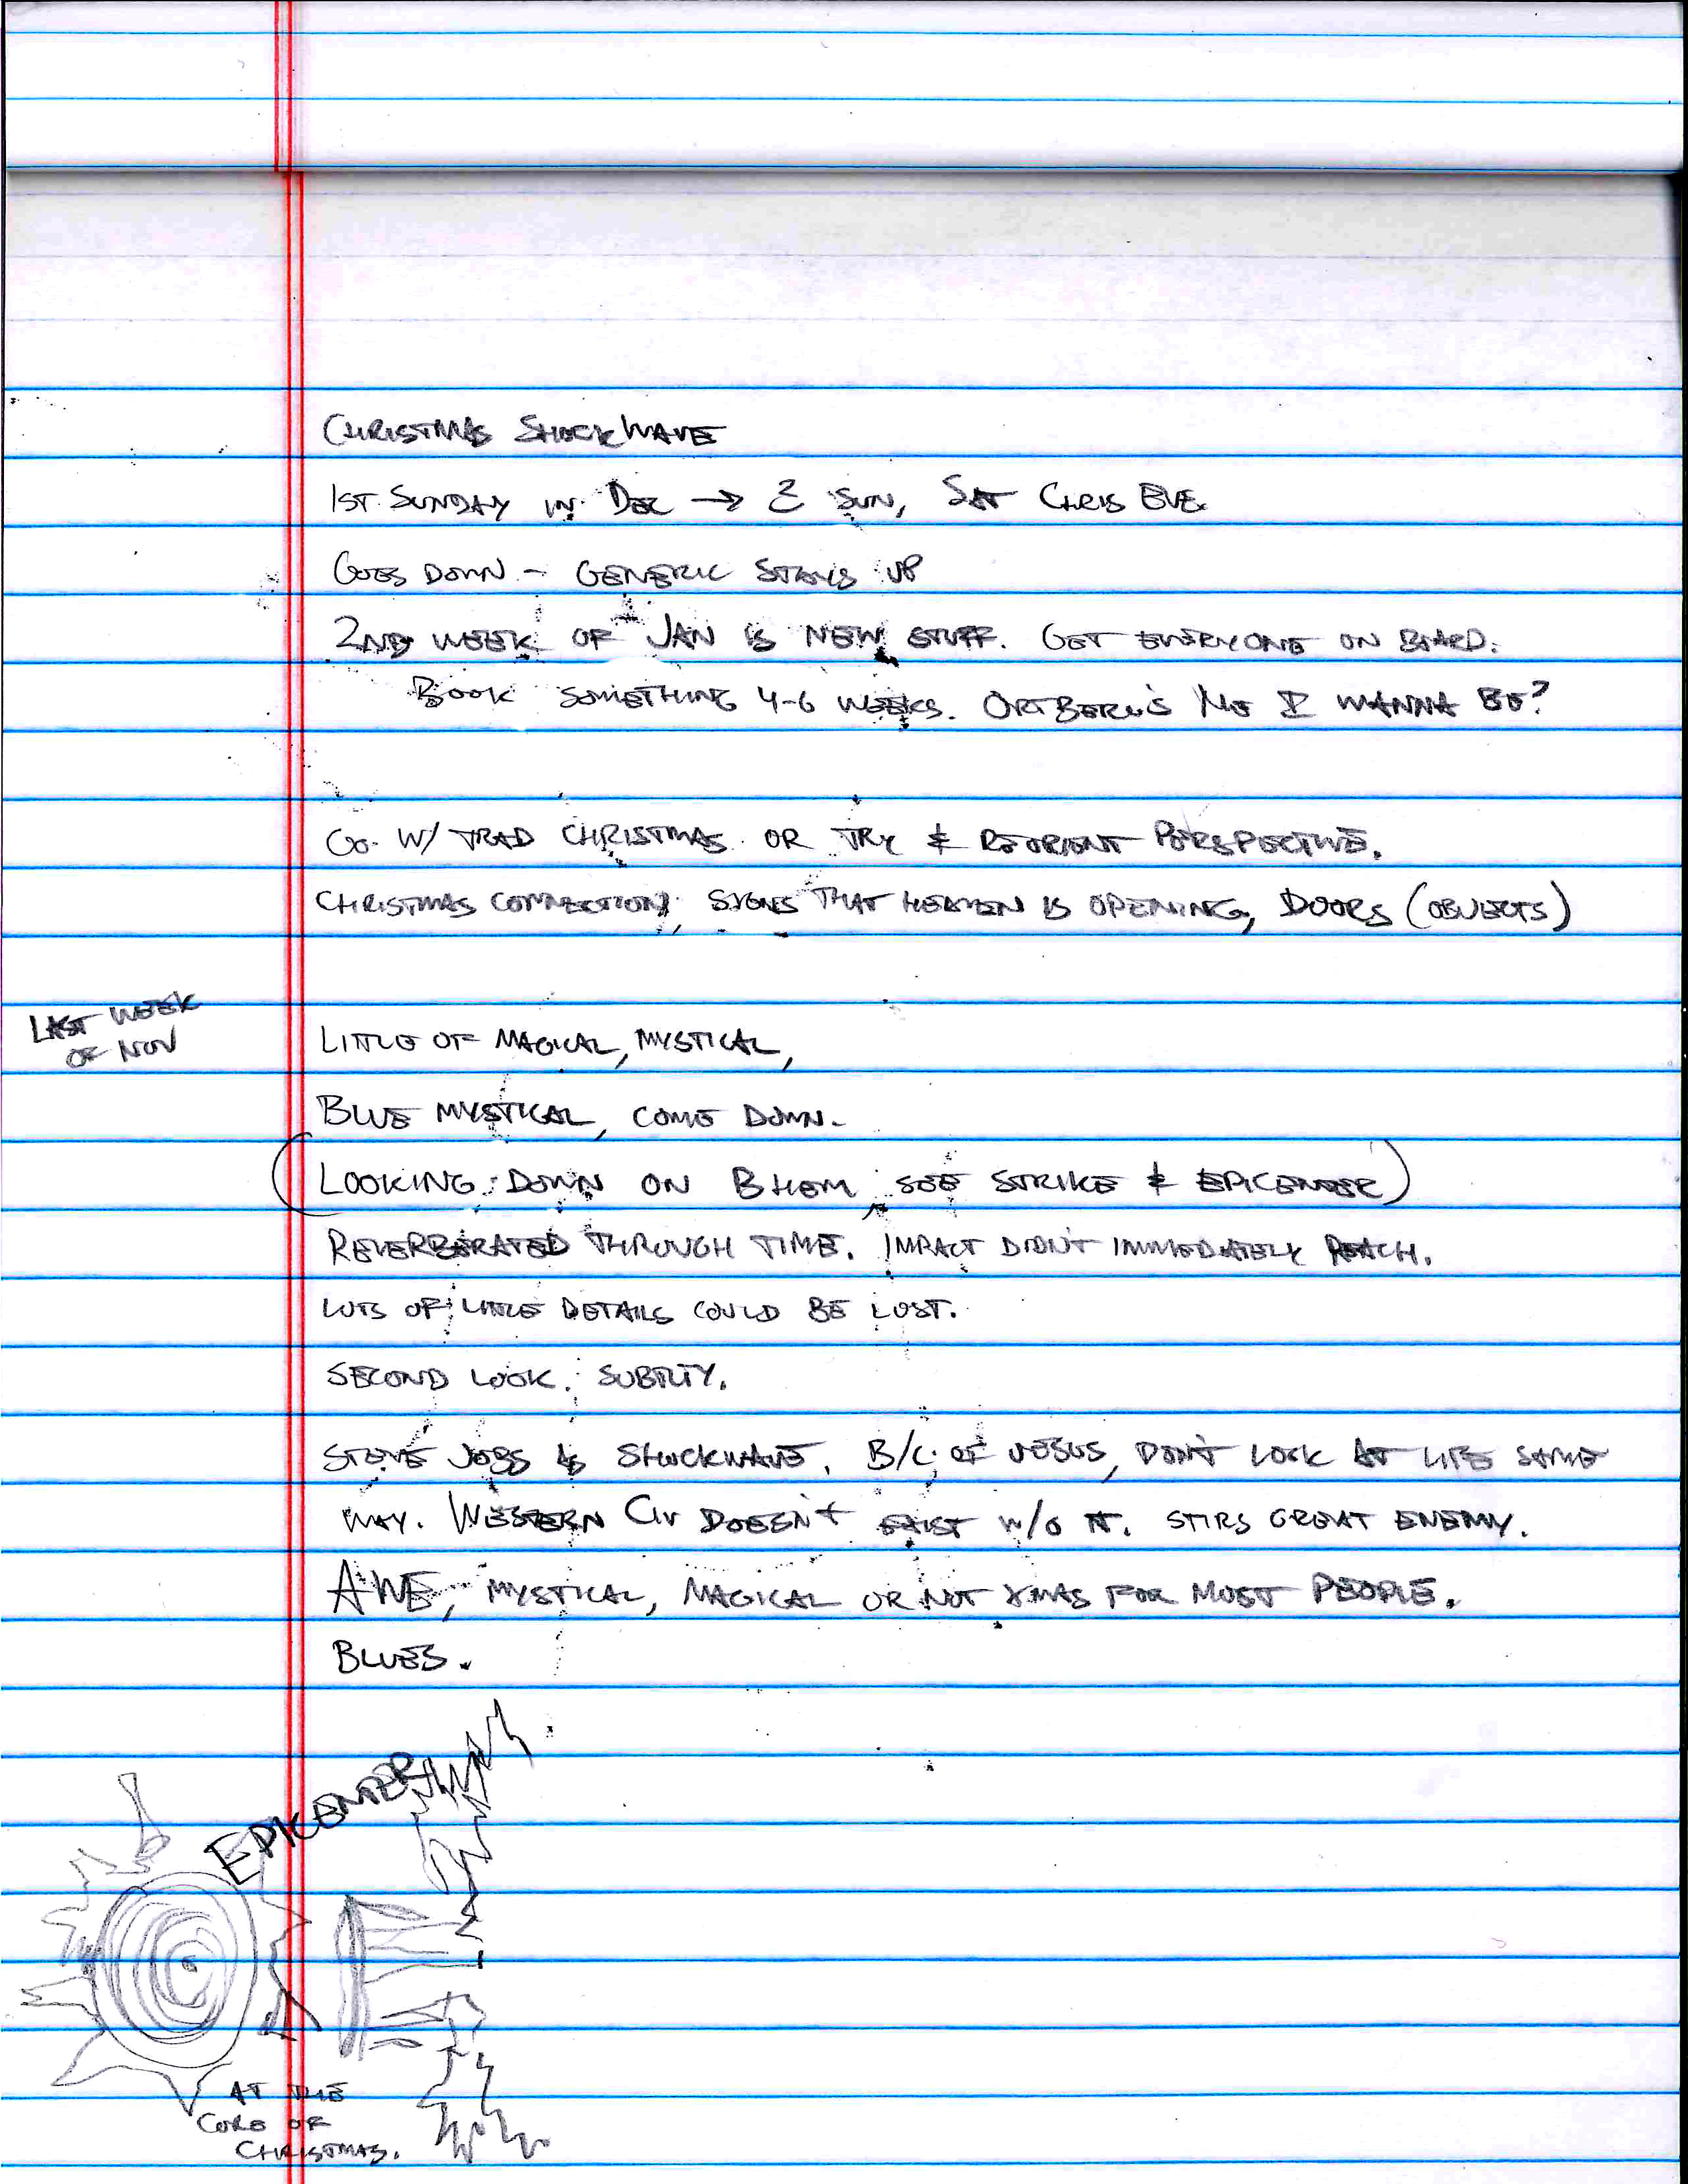 CHRISTMAS SHOCKWAVE
1ST SUNDAY IN DEC → 2 SUN, SAT CHRIS EVE
GOES DOWN - GENERIC STAYS UP
2ND WEEK OF JAN IS NEW STUFF. GET EVERYONE ON BOARD.
BOOK SOMETHING 4-6 WEEKS. ORTBERG'S ME I WANNA BE?
GO W/ TRAD CHRISTMAS OR TRY & REORIENT PERSPECTIVE.
CHRISTMAS CONNECTION, SIGNS THAT HEAVEN IS OPENING, DOORS (OBJECTS)
LAST WEEK
OF NOV
LITTLE OF MAGICAL, MYSTICAL,
BLUE MYSTICAL, COME DOWN.
(LOOKING DOWN ON BHEM, SEE STRIKE & EPICENTER)
REVERBERATED THROUGH TIME. IMPACT DIDN'T IMMEDIATELY REACH.
LOTS OF LITTLE DETAILS COULD BE LOST.
SECOND LOOK. SUBTLTY.
STEVE JOBS IS SHOCKWAVE. B/C OF JESUS, DON'T LOOK AT LIFE SAME
WAY. WESTERN CIV DOESN'T EXIST W/O IT. STIRS GREAT ENEMY.
AWE, MYSTICAL, MAGICAL OR NOT XMAS FOR MOST PEOPLE.
BLUES.
EPICENTER
AT THE
CORE OF
CHRISTMAS.